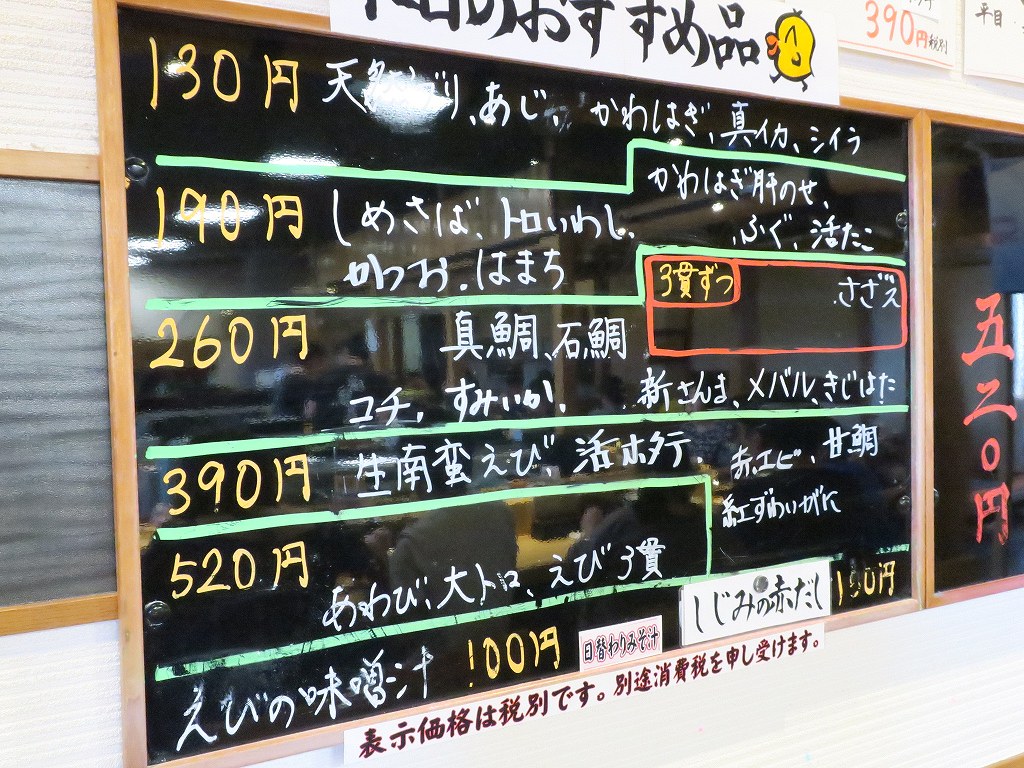 のおすすめ品
390円税別
平目
130円 天然ぶり、あじ、かわはぎ、真イカ、シイラ
かわはぎ肝のせ、
190円 しめさば、トロいわし、ふぐ、活だこ
かつお、はまち
3貫ずつ さざえ
260円 真鯛、石鯛
コチ、すみいか、新さんま、メバル、きじはた
390円 生南蛮えび、活ホタテ、赤エビ、甘鯛
紅ずわいがに
520円
あわび、大トロ、えび3貫
えびの味噌汁 100円 日替わりみそ汁 しじみの赤だし
表示価格は税別です。別途消費税を申し受けます。
五二〇円